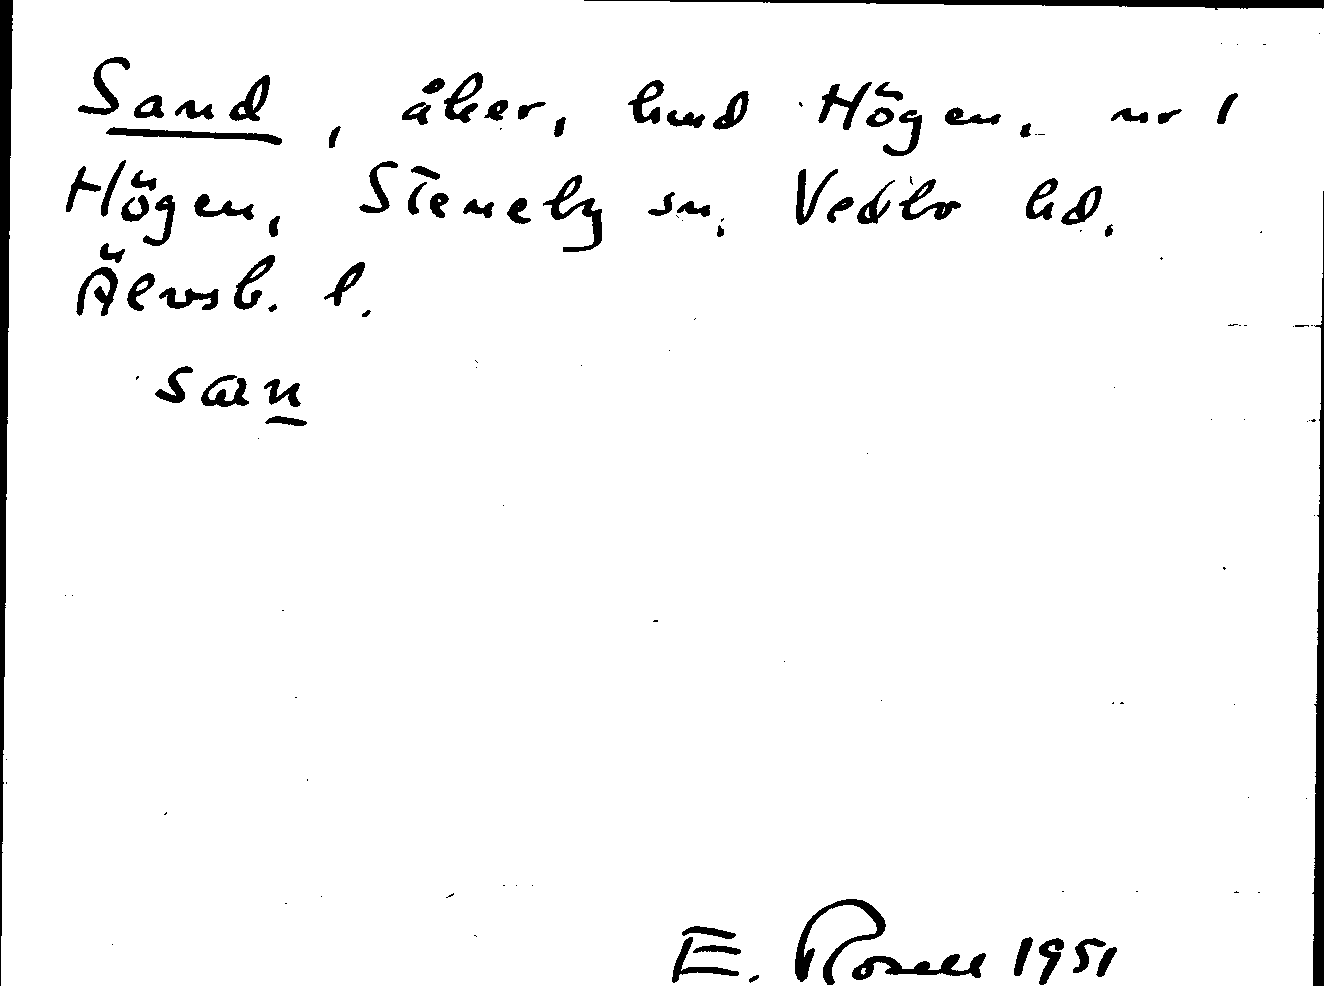 Sand, åker, hmd Högen, nr 1
Högen, Steneby sn. Vedbo hd.
Älvsb. l.
sαn
E. Rosell 1951